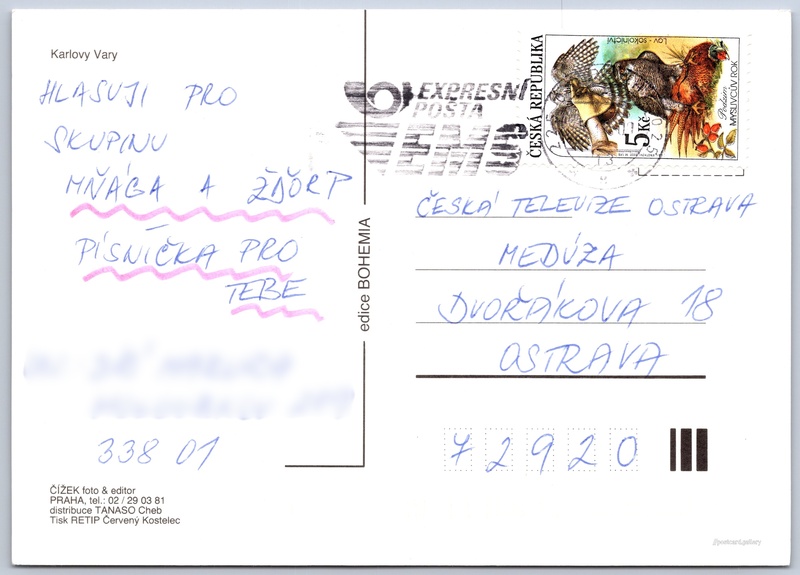 Karlovy Vary
HLASUJI PRO
SKUPINU
MŇÁGA A ŽĎORP
PÍSNIČKA PRO
TEBE
338 01
ČÍŽEK foto & editor
PRAHA, tel.: 02 / 29 03 81
distribuce TANASO Cheb
Tisk RETIP Červený Kostelec
edice BOHEMIA
EXPRESNÍ
POŠTA
EMS
ČESKÁ REPUBLIKA
5 Kč
Lov - sokolnictví
Podzim
MYSLIVCŮV ROK
ČESKÁ TELEVIZE OSTRAVA
MEDÚZA
DVOŘÁKOVA 18
OSTRAVA
72920